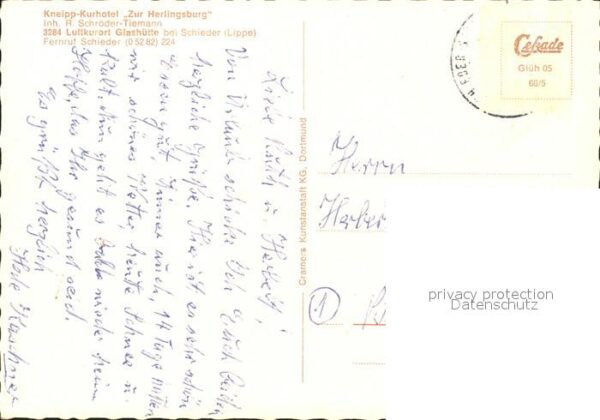 Kneipp-Kurhotel „Zur Herlingsburg"
Inh. R. Schröder-Tiemann
3284 Luftkurort Glashütte bei Schieder (Lippe)
Fernruf Schieder (0 52 82) 224
Liebe Ruth u. Herbert!
Von Urlaub schicke Ich Euch beiden
herzliche Grüße. Hier ist es sehr schön
Essen gut, Zimmer auch, 14 Tage hatten
wir schönes Wetter, heute Schnee u.
kalt. Nun geht es bald wieder heim
Hoffe, das Ihr gesund seid.
Es grüßt herzlich
Cramers Kunstanstalt KG, Dortmund
Cekade
Glüh 05
66/5
Herrn
Herber
1
privacy protection
Datenschutz